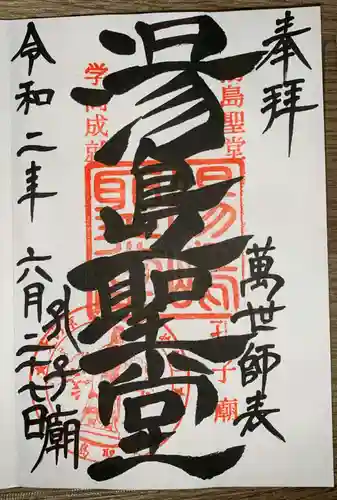 奉拝
萬世師表
湯島聖堂
孔子廟
令和二年六月二十七日
湯島聖堂
学問成就
孔子廟